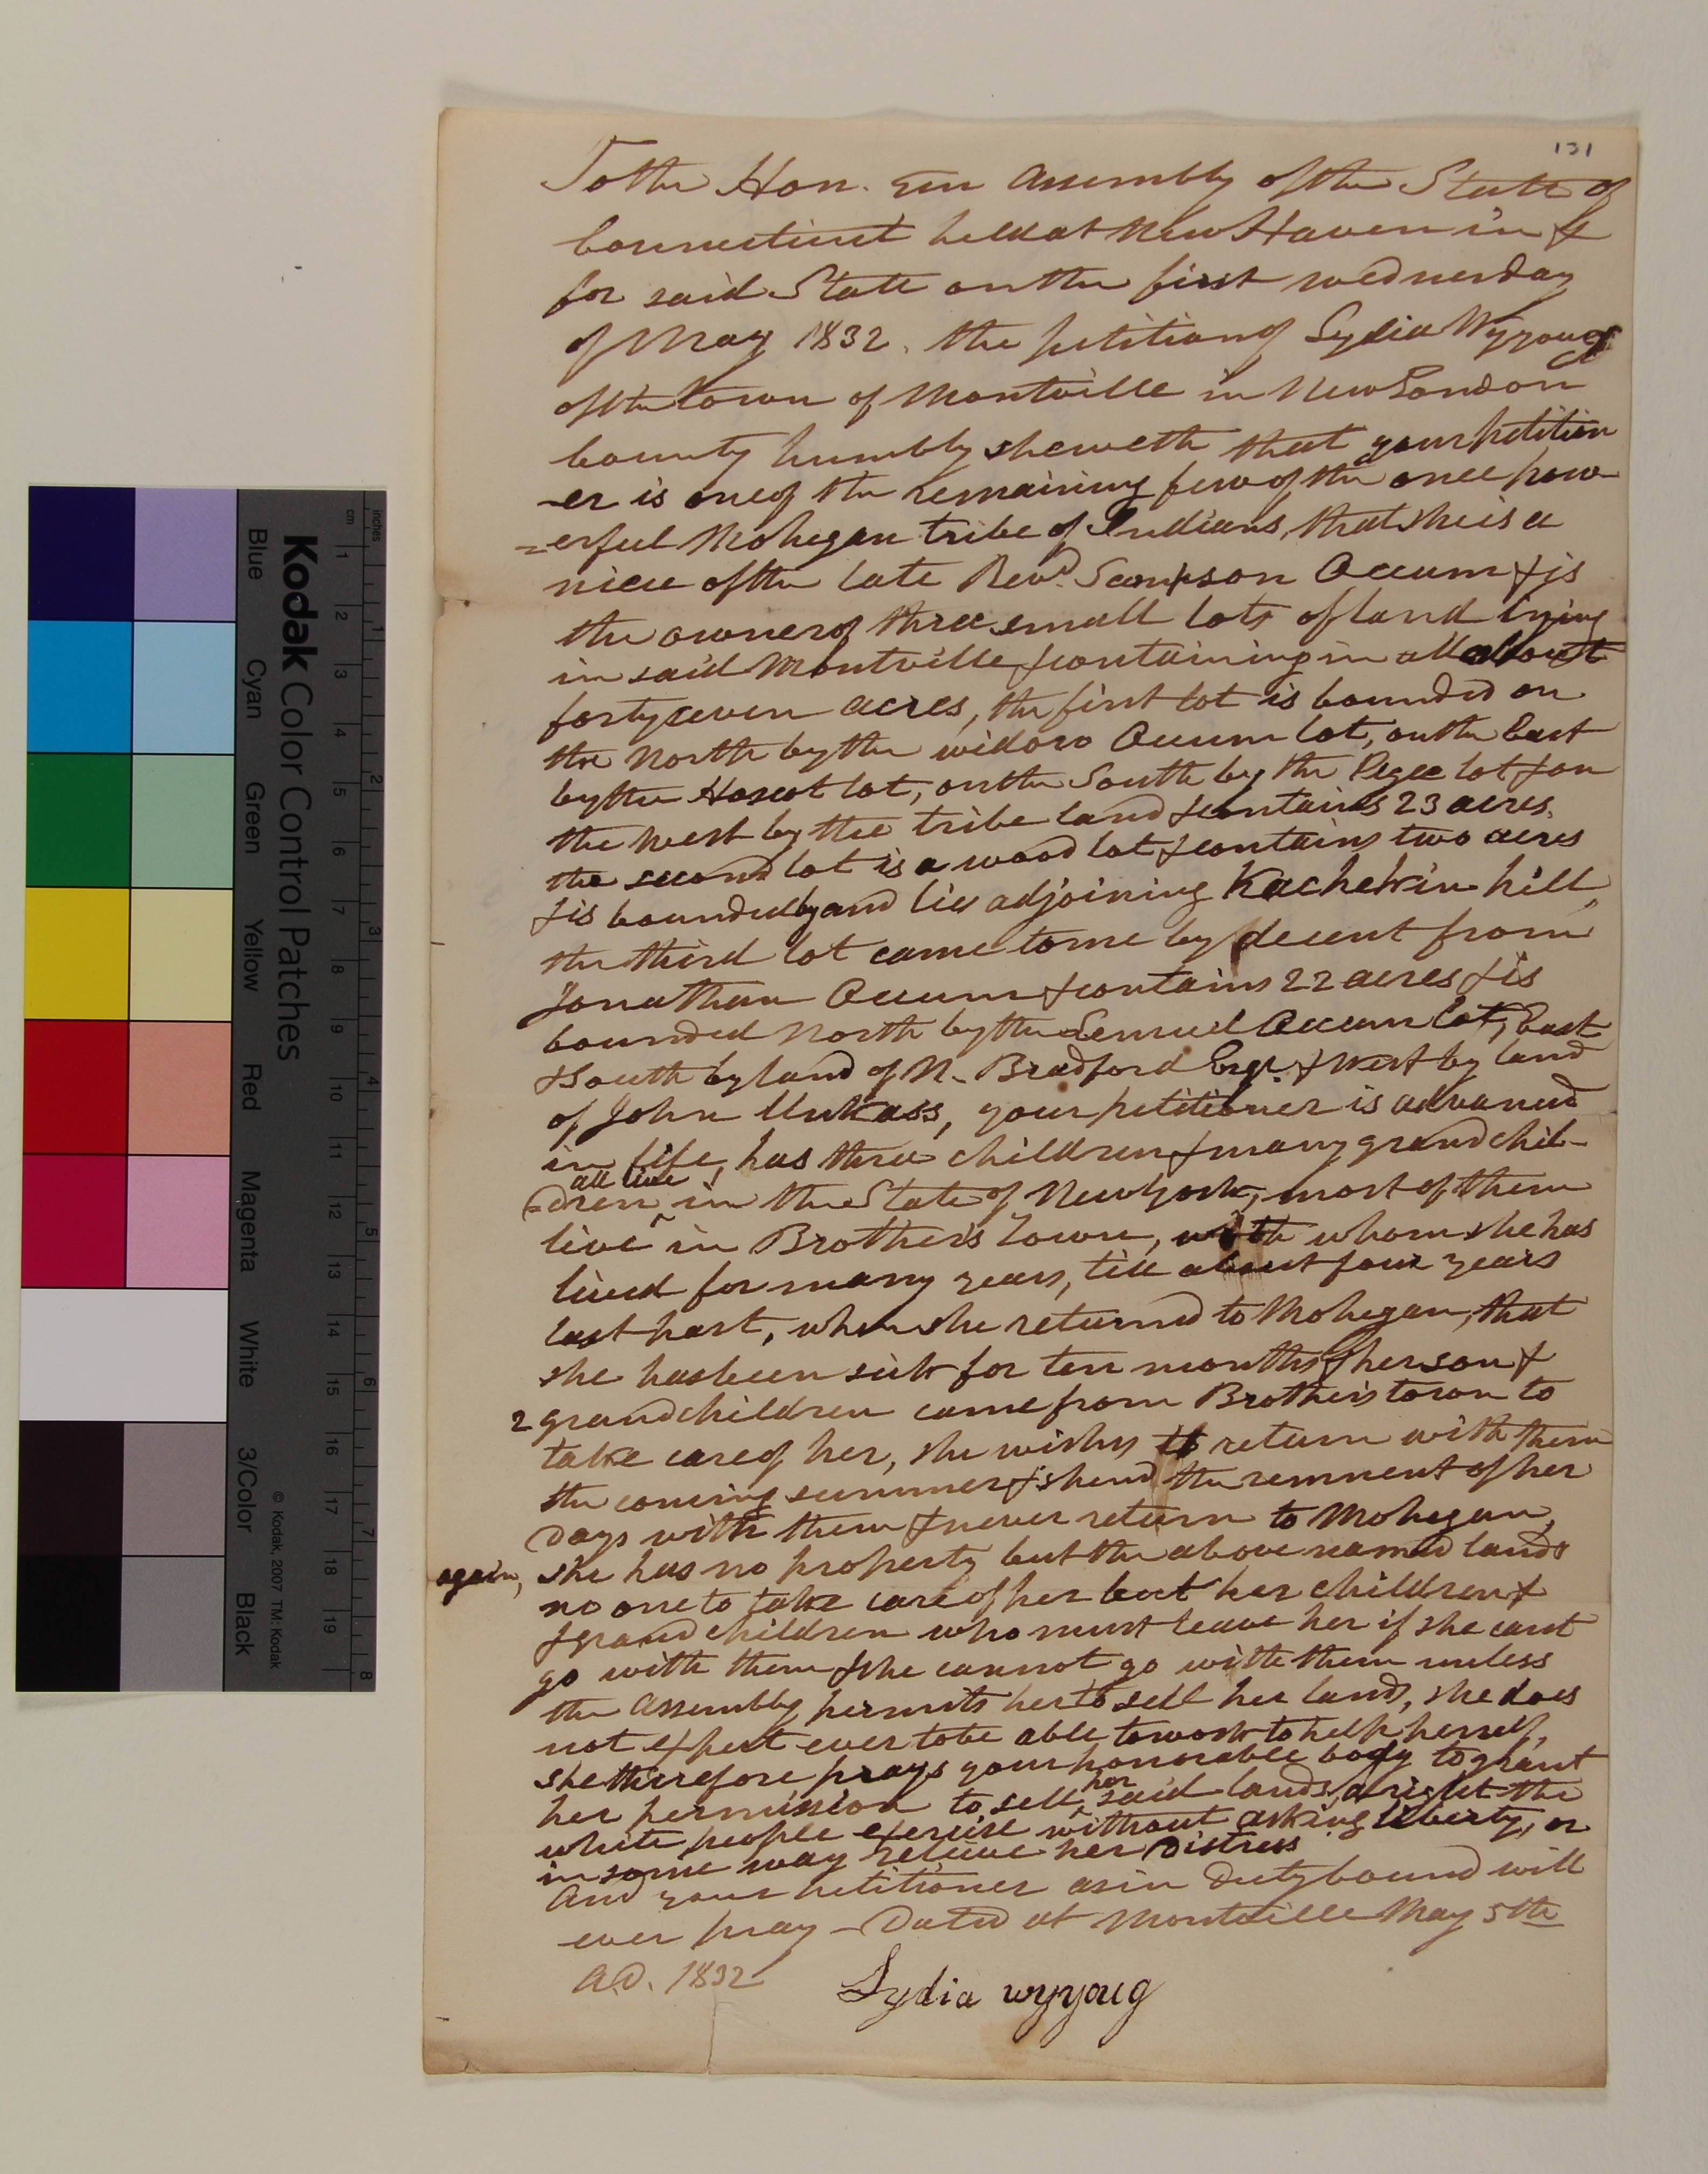 131
To the Hon. Gen Assembly of the State of
Connecticut held at New Haven in &
for said State on the first wednesday
of May 1832. the petition of Lydia Wyyoug
of the town of Montville in New London
County humbly sheweth that your petition
-er is one of the remaining few of the once pow-
=erful Mohegan tribe of Indians, that she is a
niece of the late Revd. Sampson Occum & is
the owner of three small lots of land lying
in said Montville & containing in all about
forty seven acres, the first lot is bounded on
the North by the widow Occum lot, on the East
by the Hoscot lot, on the South by the Pegee lot & on
the west by the tribe land & contains 23 acres.
the second lot is a wood lot & contains two acres
& is bounded by and lies adjoining Kachekin hill,
the third lot came to me by decent from
Jonathan Occum & contains 22 acres & is
bounded North by the Lemuel Occum lot, East
& South by land of N. Bradford Esqr. & West by land
of John Unkass, your petitioner is advanced
in life, has three children & many grandchil-
all live
=dren in the State of New York, most of them
live in Brothers Town, with whom she has
lived for many years, till about four years
last past, when she returned to Mohegan, that
she has been sick for ten months & her son &
2 grandchildren came from Brothers town to
take care of her, she wishes to return with them
the coming summer & spend the remnent of her
Days with them & never return to Mohegan,
again, she has no property but the above named lands
no one to take care of her but her children &
& grand children who must leave her if she cant
go with them & she cannot go with them unless
the Assembly permits her to sell her land, she does
not expect ever to be able to work to help herself,
she therefore prays your honorable body to grant
her
her permission to sell said lands, a right the
white people exercise without asking liberty, or
in some way relieve her Distress
And your petitioner as in Duty bound will
ever pray - Dated at Montville May 5th
A.D. 1832
Lydia wyyoug
Kodak Color Control Patches
Blue Cyan Green Yellow Red Magenta White 3/Color Black
© Kodak, 2007 TM: Kodak
cm 1 2 3 4 5 6 7 8 9 10 11 12 13 14 15 16 17 18 19
inches 1 2 3 4 5 6 7 8